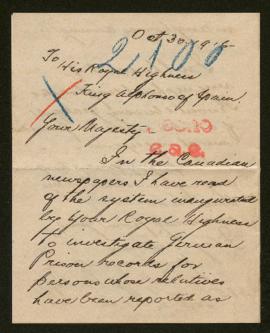 Oct 30, 1915
To
His Royal Highness
King Alphonso of Spain.
Your Majesty
In The Canadian
newspapers I have read
of the system inaugurated
by Your Royal Highness
to investigate German
Prison records for
persons whose relatives
have been reported as